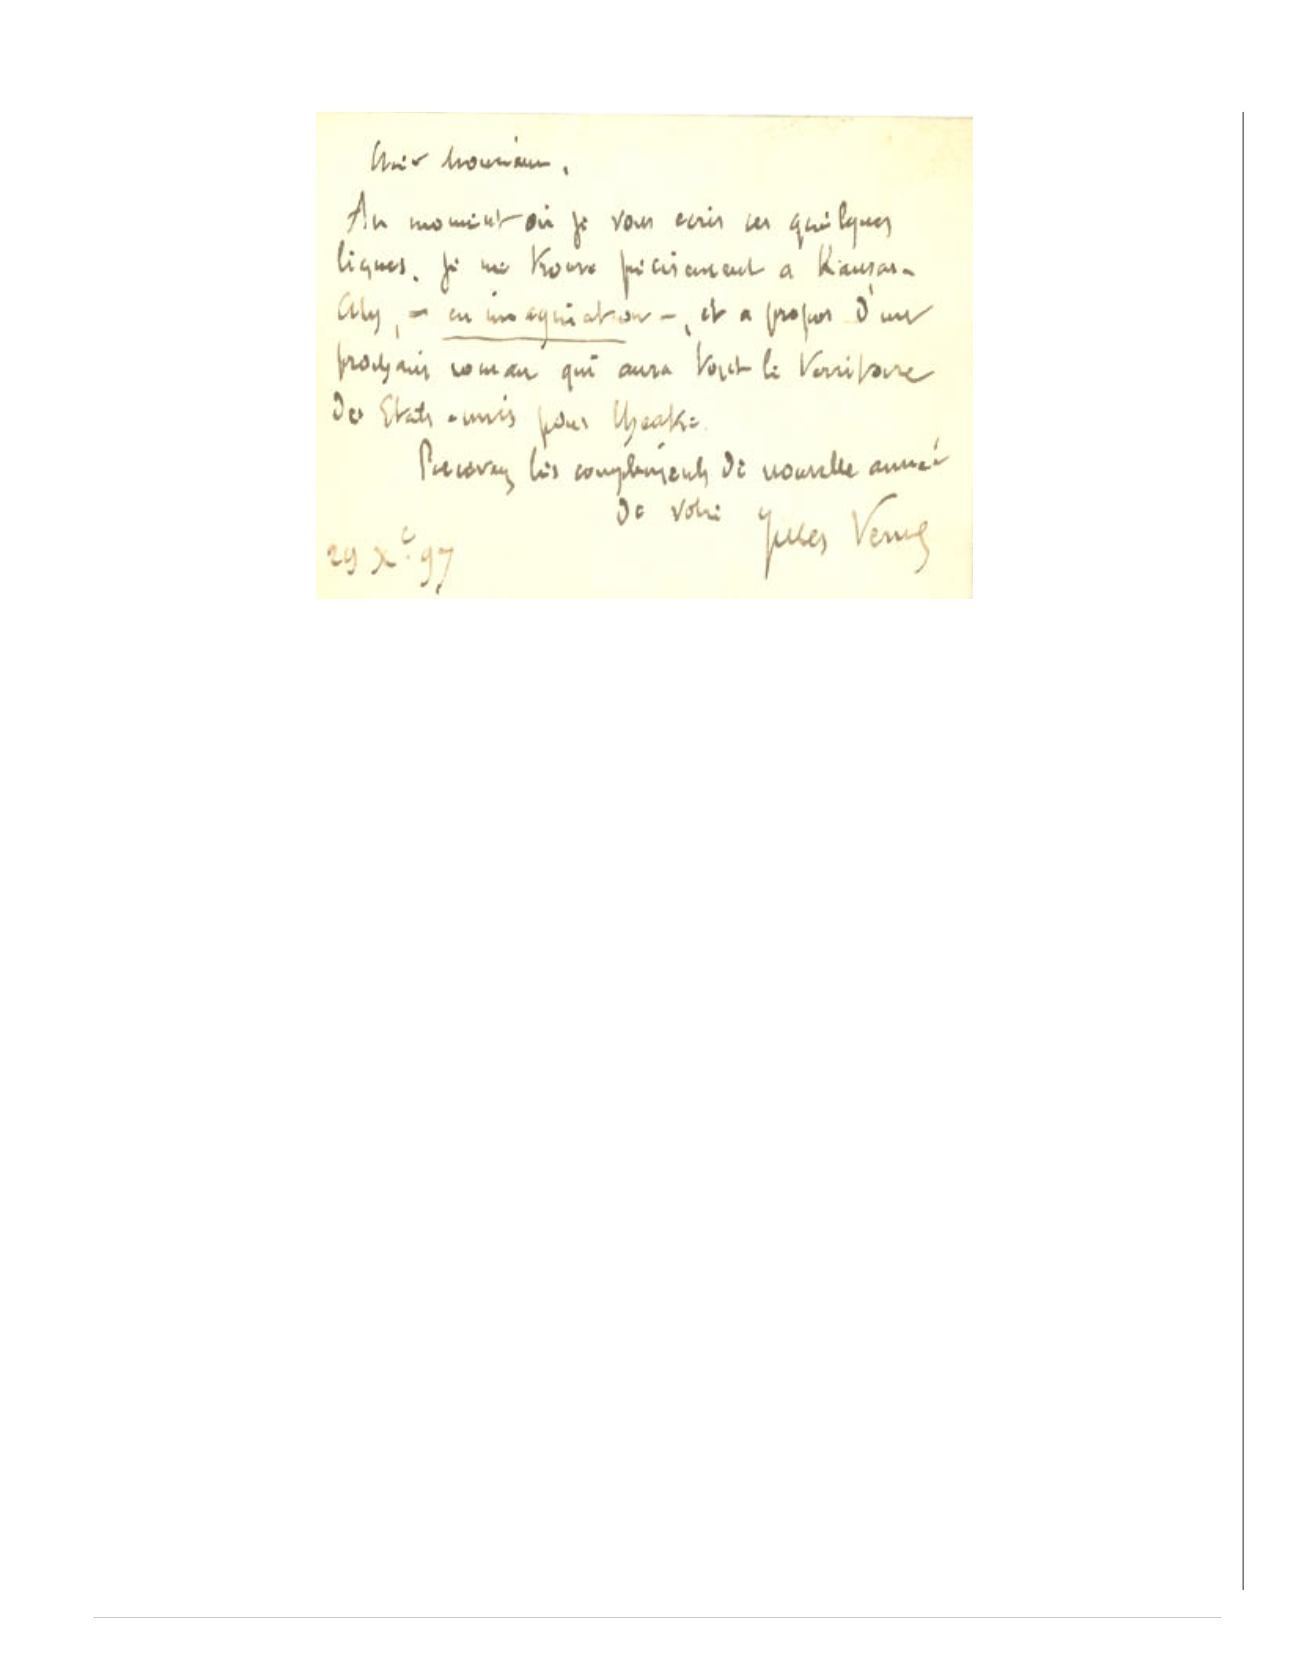 Cher Monsieur,
Au moment où je vous ecris ces quelques
lignes, je me trouve précisément a Kansas-
City, – en imagination –, et a propos d'un
prochain roman qui aura tout le territoire
des Etats-unis pour theatre.
Recevez les compliments de nouvelle année
de votre Jules Verne
29 Xe 97